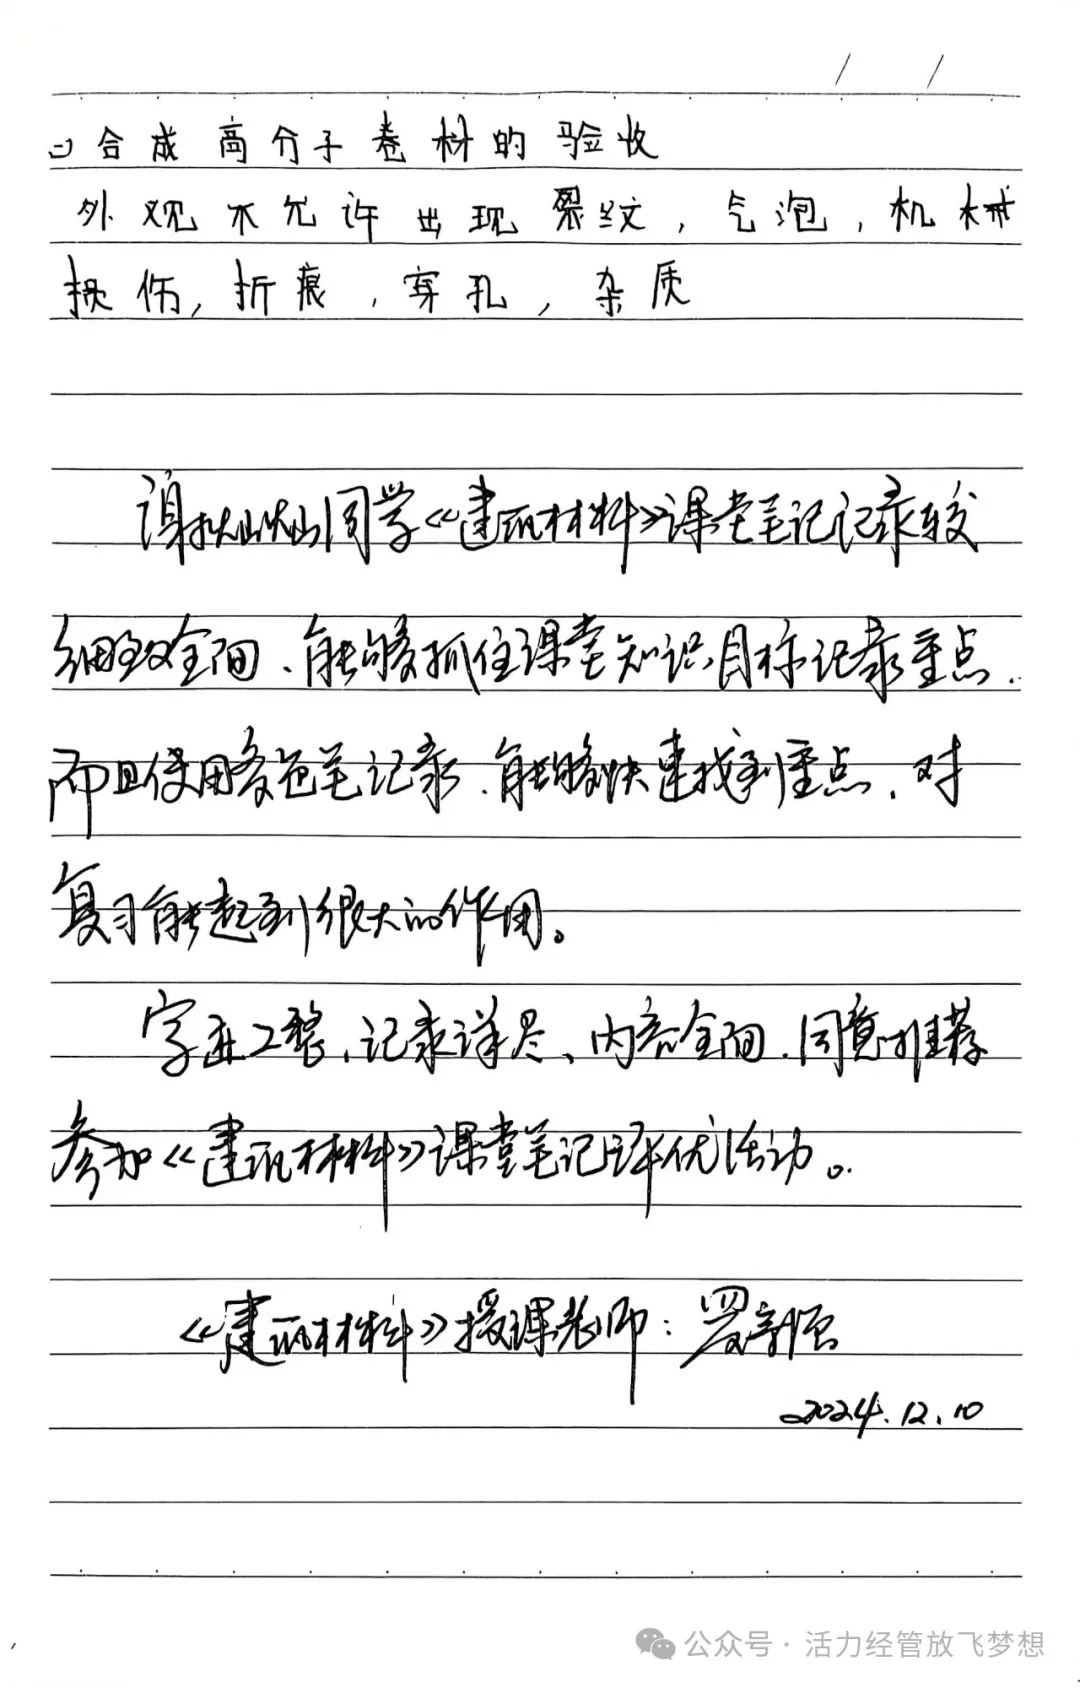 合成高分子卷材的验收
外观不允许出现裂纹,气泡,机械
损伤,折痕,穿孔,杂质
谢灿灿同学《建筑材料》课堂笔记记录较
细致全面、能够抓住课堂知识目标记录重点.
而且使用多色笔记录、能够快速找到重点、对
复习能起到很大的作用。
字迹工整、记录详尽、内容全面、同意推荐
参加《建筑材料》课堂笔记评优活动。
《建筑材料》授课老师:罗
2024.12.10
公众号·活力经管放飞梦想